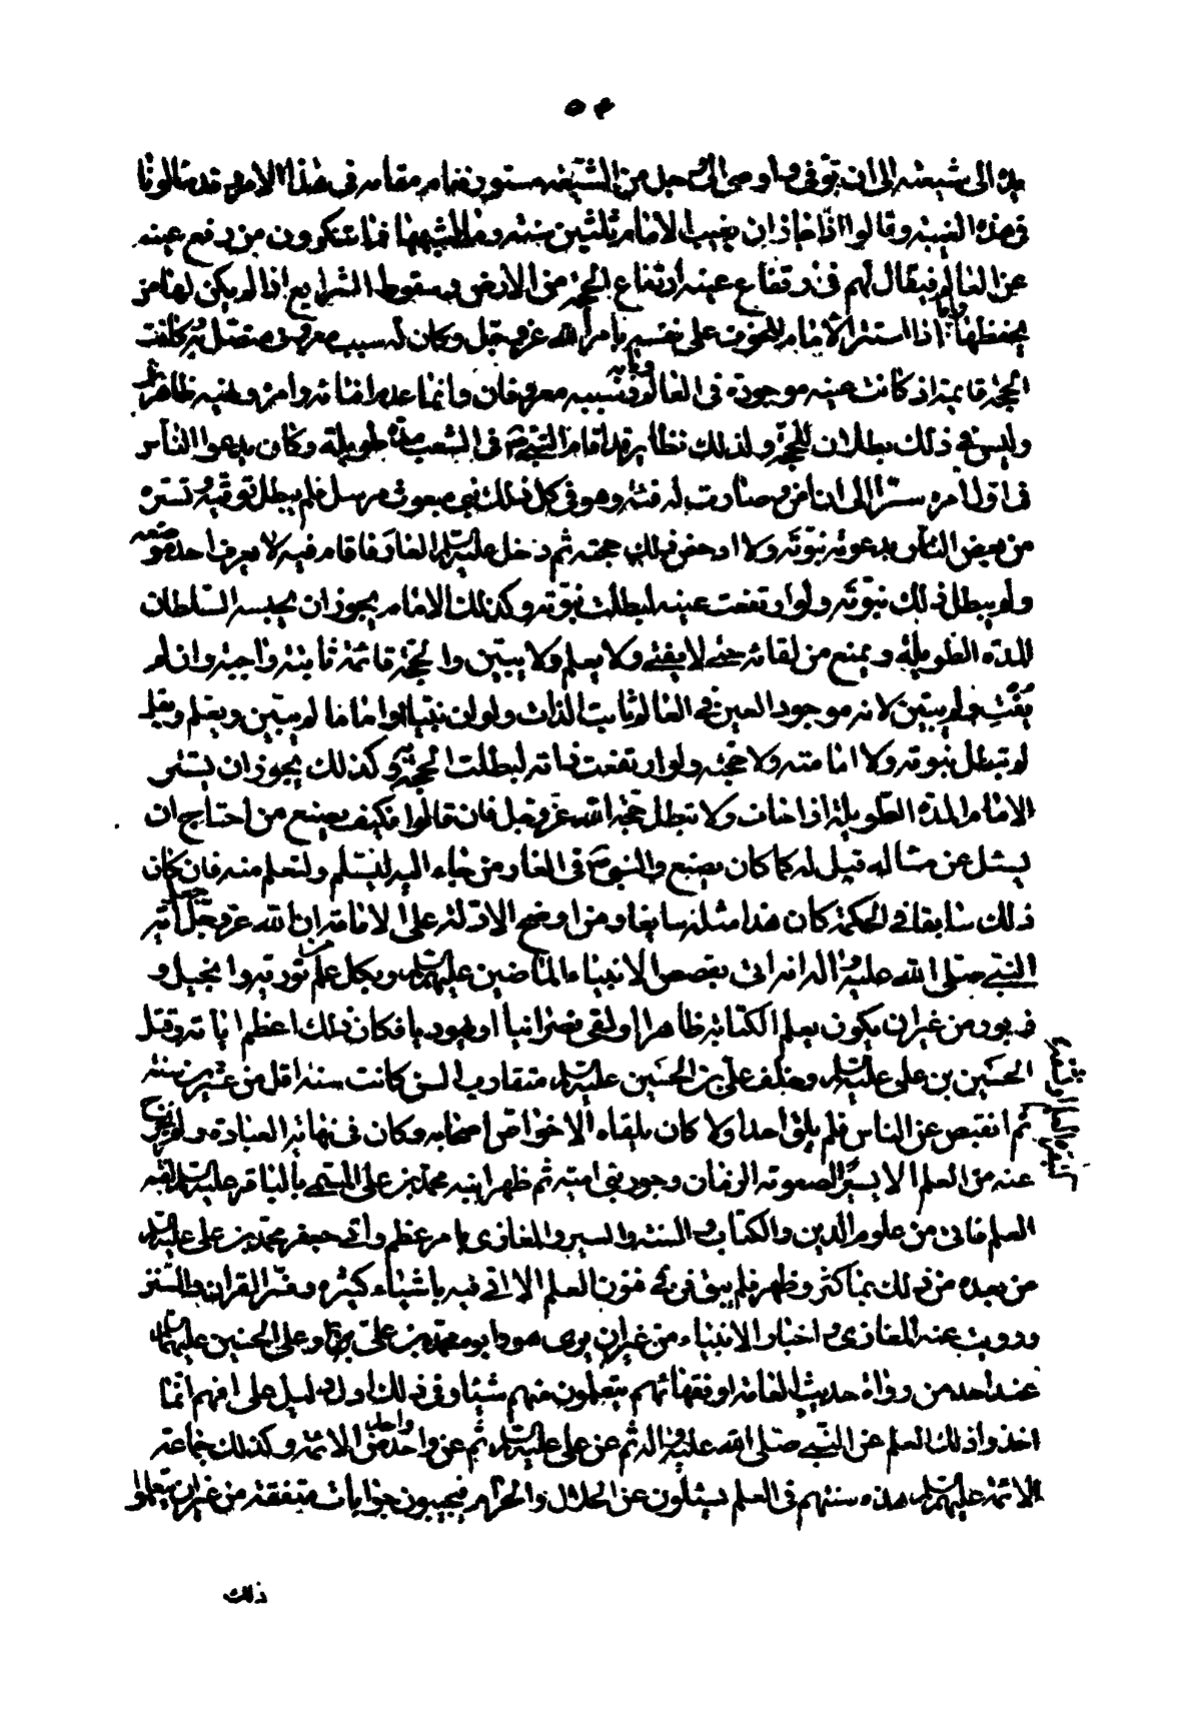 ٥٤
يده الى شيعته الى ان توفى و اوصى الى رجل من الشيعة مستور فقام مقامه فى هذا الامر و قد سالونا
فى هذه الغيبة و قالوا اذا جاز ان يغيب الامام ثلثين سنة و ما اشبهها فما تنكرون من رفع عينه
عن العالم فيقال لهم فى ارتفاع عينه ارتفاع الحجة من الارض و سقوط الشرايع اذا لم يكن لها من
يحفظها و اما اذا استتر الامام للخوف على نفسه بامر الله عز و جل و كان له سبب معروف متصل به كانت
الحجة قائمة اذ كانت عينه موجودة فى العالم و بابه و سببه معروفان و انما عدم افتائه و امره و نهيه ظاهرا
و ليس فى ذلك بطلان للحجة و لذلك نظاير قد اقام النبى ص فى الشعب مدة طويلة و كان يدعوا الناس
فى اول امره سرا الى ان امن و صارت له فئة و هو فى كل ذلك نبى مبعوث مرسل فلم يبطل توقيه و تستره
من بعض الناس بدعوته نبوته و لا ادحض ذلك حجته ثم دخل عليه السلم الغار فاقام فيه لا يعرف احد موضعه
و لم يبطل ذلك نبوته و لو ارتفعت عينه لبطلت نبوته و كذلك الامام يجوز ان يحبسه السلطان
المدة الطويلة و يمنع من لقائه حتى لا يفتى و لا يعلم و لا يبين و الحجة قائمة ثابتة واجبة و ان لم
يفت و لم يبين لانه موجود العين فى العالم ثابت الذات و لو ان نبيا او اماما لم يبين و يعلم و يفت
لم تبطل نبوته و لا امامته و لا حجته و لو ارتفعت ذاته لبطلت الحجة و كذلك يجوز ان يستتر
الامام المدة الطويلة اذا خاف و لا تبطل حجة الله عز و جل فان قالوا فكيف يصنع من احتاج ان
يسئل عن مسالة قيل له كما كان يصنع و النبى ص فى الغار من جاء اليه ليسلم و ليتعلم منه فان كان
ذلك سايغا فى الحكمة كان هذا مثله سايغا و من اوضح الادلة على الامامة ان الله عز و جل جعل اية
النبى صلى الله عليه و اله انه اتى بقصص الانبياء الماضين عليهم السلم و بكل علم تورية و انجيل و
زبور من غير ان يكون يعلم الكتابة ظاهرا او لقى نصرانيا او يهوديا فكان ذلك اعظم اياته و قتل
الحسين بن على عليه السلم و خلف على بن الحسين عليه السلم متقارب السن كانت سنه اقل من عشرين سنة
ثم انقبض عن الناس فلم يلق احدا و لا كان يلقاه الا خواص اصحابه و كان فى نهاية العبادة و لم يخرج
عنه من العلم الا يسيرا لصعوبة الزمان و جور بنى امية ثم ظهر ابنه محمد بن على المسمى بالباقر عليه السلم لفتقه
العلم فاتى من علوم الدين و الكتاب و السنة و السير و المغازى بامر عظيم و اتى جعفر بن محمد بن على عليه السلم
من بعده من ذلك بما كثر و ظهر فلم يبق فن فى فنون العلم الا اتى فيه باشياء كثيرة و فسر القران و السنن
و رويت عنه المغازى و اخبار الانبياء من غير ان يرى هو و ابوه محمد بن على و على بن الحسين عليهم السلم
عند احد من رواة حديث العامة او فقهائهم يتعلمون منهم شيئا و فى ذلك ادل دليل على انهم انما
اخذوا ذلك العلم عن النبى صلى الله عليه و اله ثم عن على عليه السلم ثم عن واحد واحد من الائمة و كذلك جماعة
الائمة عليهم السلم هذه سنتهم فى العلم يسئلون عن الحلال و الحرام فيجيبون جوابات متفقة من غير ان يتعلموا
ذلك